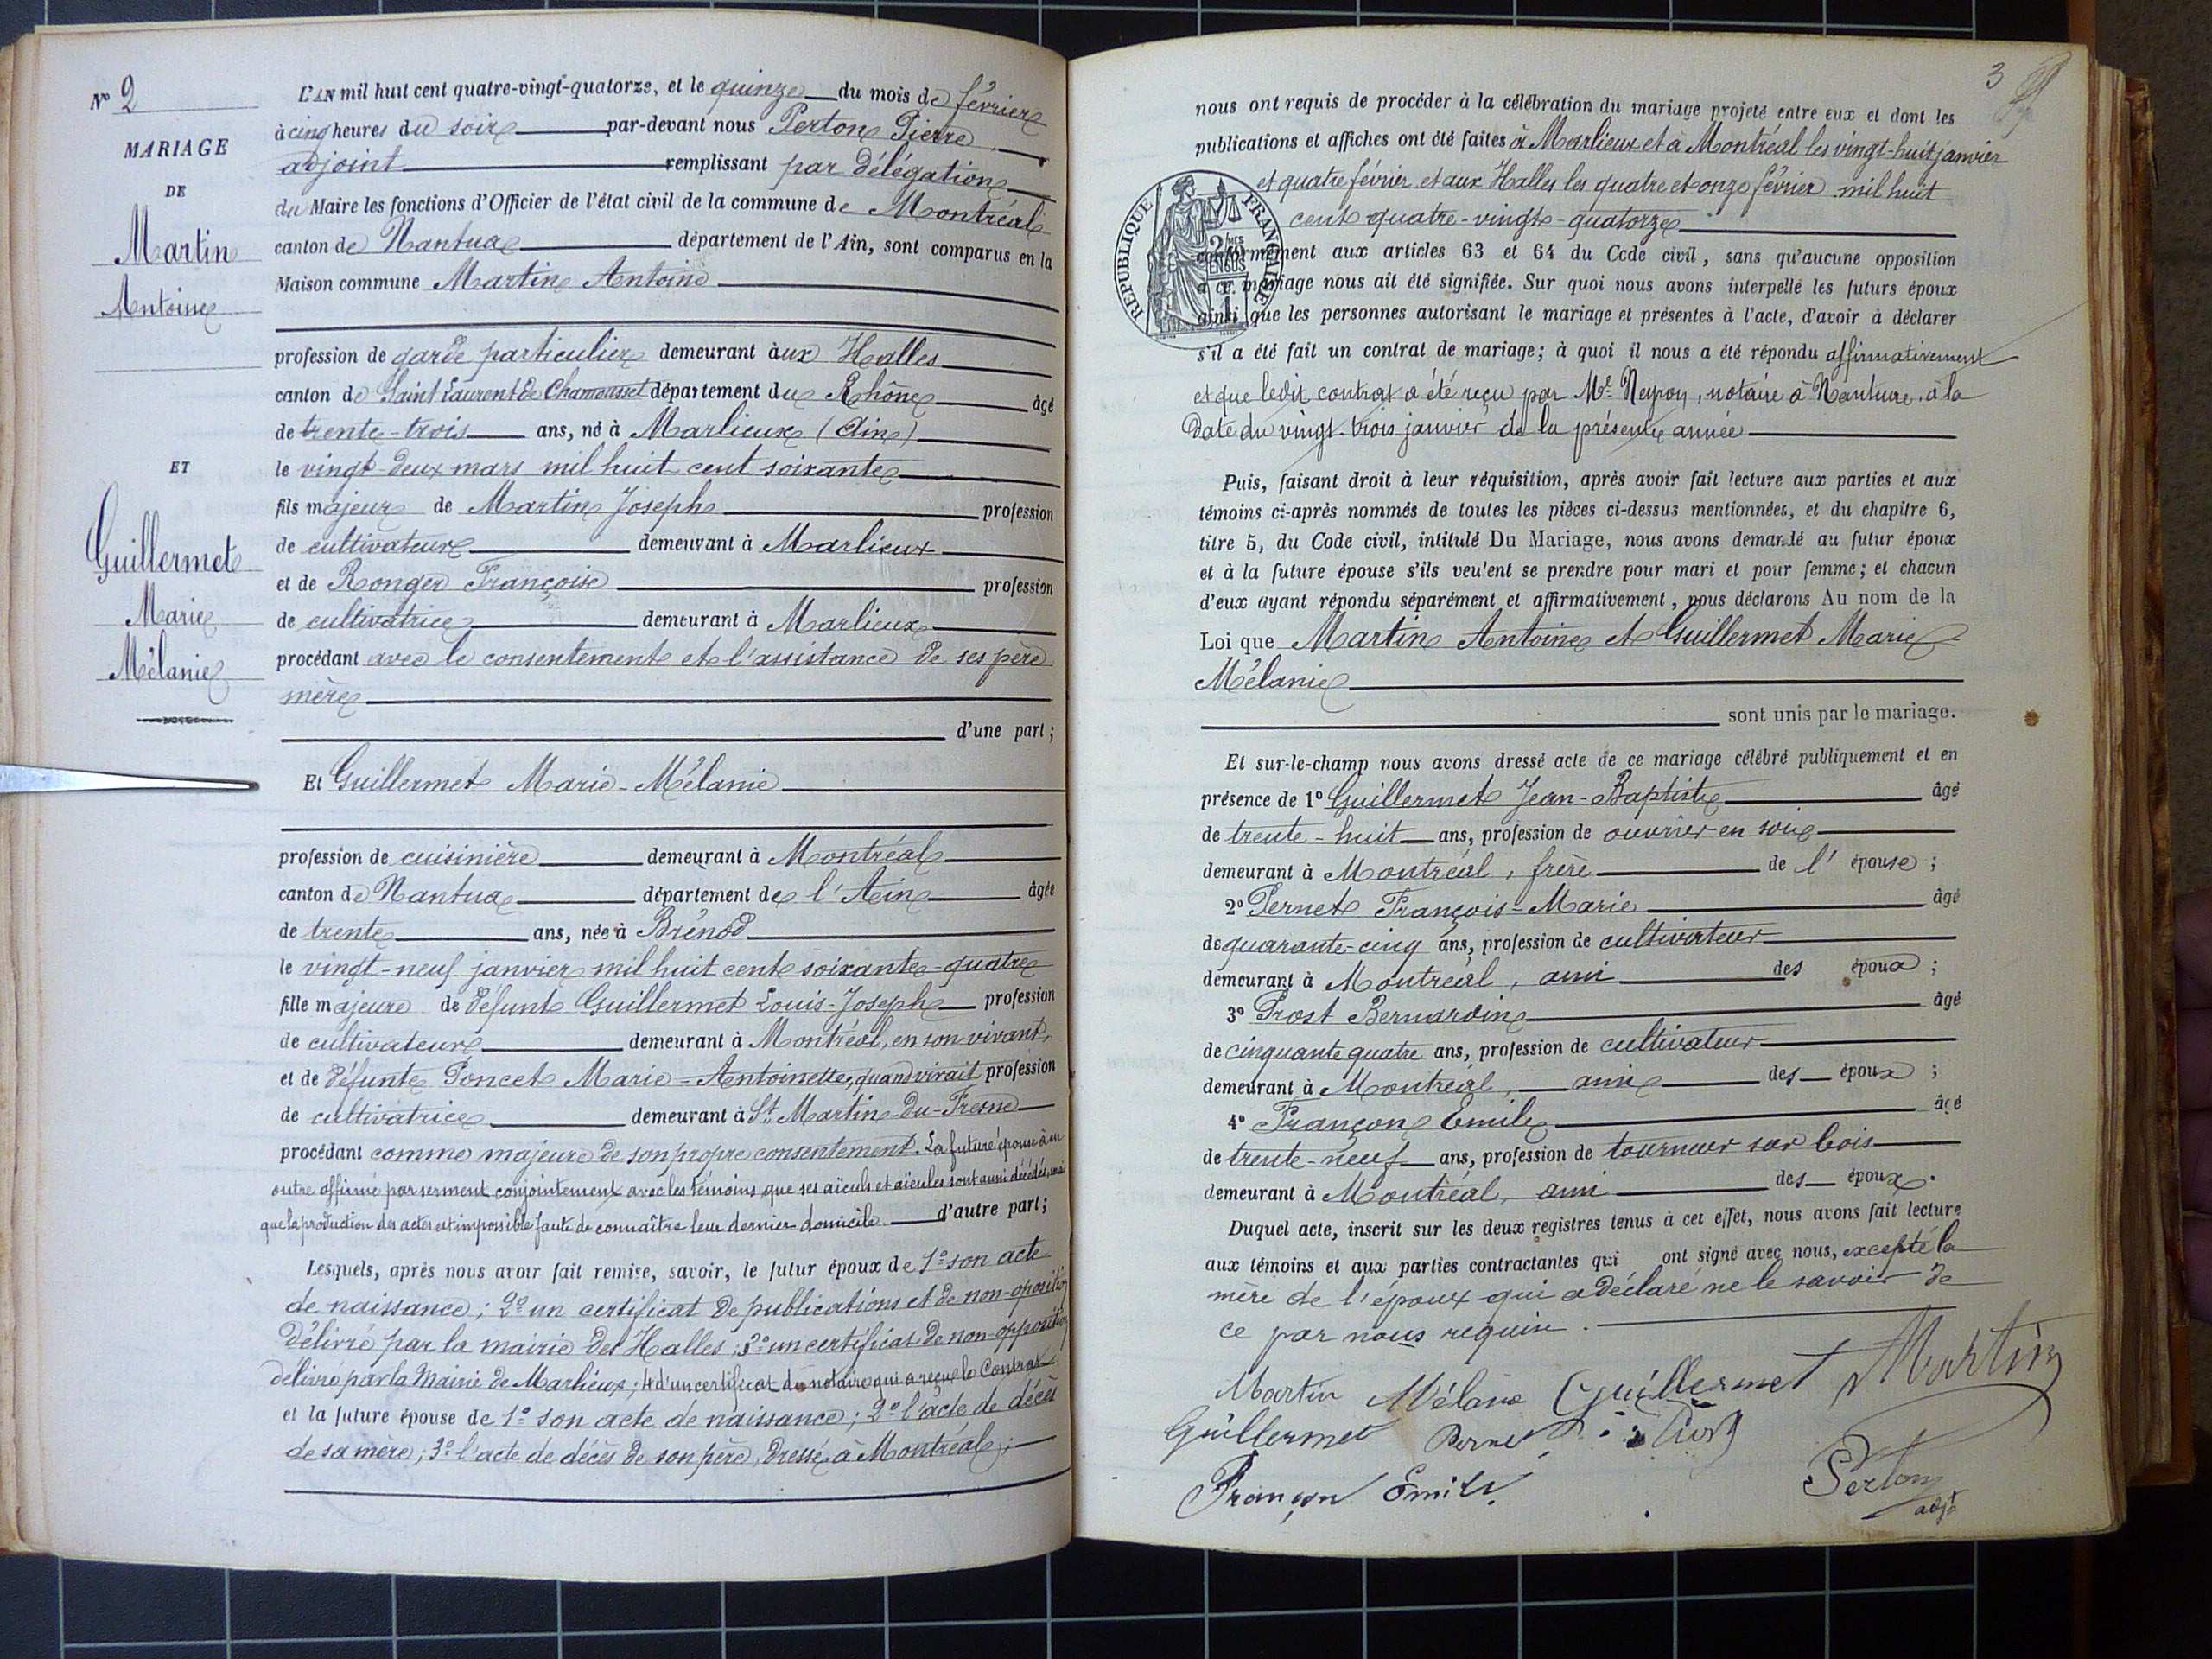 Nº 2
MARIAGE
DE
Martin
Antoine
ET
Guillermet
Marie
Mélanie
L'AN mil huit cent quatre-vingt-quatorze, et le quinze du mois de février
à cinq heures du soir par-devant nous Perton Pierre
adjoint remplissant par délégation
du Maire les fonctions d'Officier de l'état civil de la commune de Montréal
canton de Nantua département de l'Ain, sont comparus en la
Maison commune Martin Antoine
profession de garde particulier demeurant aux Halles
canton de Saint Laurent de Chamousset département du Rhône âgé
de trente-trois ans, né à Marlieux (Ain)
le vingt-deux mars mil huit cent soixante
fils majeur de Martin Joseph profession
de cultivateur demeurant à Marlieux
et de Ronger Françoise profession
de cultivatrice demeurant à Marlieux
procédant avec le consentement et l'assistance de ses père
mère
d'une part ;
Et Guillermet Marie-Mélanie
profession de cuisinière demeurant à Montréal
canton de Nantua département de l'Ain âgée
de trente ans, née à Brénod
le vingt-neuf janvier mil huit cent soixante-quatre
fille majeure de défunt Guillermet Louis-Joseph profession
de cultivateur demeurant à Montréal, en son vivant,
et de défunte Poncet Marie-Antoinette, quand vivait profession
de cultivatrice demeurant à St Martin-du-Fresne
procédant comme majeure de son propre consentement. La future épouse a en
outre affirmé par serment conjointement avec les témoins que ses aïeuls et aïeules sont aussi décédés, mais
que la production des actes est impossible faute de connaître leur dernier domicile d'autre part ;
Lesquels, après nous avoir fait remise, savoir, le futur époux de 1º son acte
de naissance ; 2º un certificat de publications et de non-opposition
délivré par la mairie des Halles ; 3º un certificat de non-opposition
délivré par la Mairie de Marlieux ; 4 d'un certificat du notaire qui a reçu le Contrat
et la future épouse de 1º son acte de naissance ; 2º l'acte de décès
de sa mère ; 3º l'acte de décès de son père, dressé à Montréal ;
3
nous ont requis de procéder à la célébration du mariage projeté entre eux et dont les
publications et affiches ont été faites à Marlieux et à Montréal les vingt-huit janvier
et quatre février et aux Halles les quatre et onze février mil huit
cent quatre-vingt-quatorze
RÉPUBLIQUE FRANÇAISE
conformément aux articles 63 et 64 du Code civil, sans qu'aucune opposition
à ce mariage nous ait été signifiée. Sur quoi nous avons interpellé les futurs époux
ainsi que les personnes autorisant le mariage et présentes à l'acte, d'avoir à déclarer
s'il a été fait un contrat de mariage ; à quoi il nous a été répondu affirmativement
et que ledit contrat a été reçu par Me Neyron, notaire à Nantua, à la
date du vingt-trois janvier de la présente année
Puis, faisant droit à leur réquisition, après avoir fait lecture aux parties et aux
témoins ci-après nommés de toutes les pièces ci-dessus mentionnées, et du chapitre 6,
titre 5, du Code civil, intitulé Du Mariage, nous avons demandé au futur époux
et à la future épouse s'ils veulent se prendre pour mari et pour femme ; et chacun
d'eux ayant répondu séparément et affirmativement, nous déclarons Au nom de la
Loi que Martin Antoine et Guillermet Marie
Mélanie
sont unis par le mariage.
Et sur-le-champ nous avons dressé acte de ce mariage célébré publiquement et en
présence de 1º Guillermet Jean-Baptiste âgé
de trente-huit ans, profession de ouvrier en soie
demeurant à Montréal, frère de l'épouse ;
2º Pernet François-Marie âgé
de quarante-cinq ans, profession de cultivateur
demeurant à Montréal, ami des époux ;
3º Prost Bernardin âgé
de cinquante quatre ans, profession de cultivateur
demeurant à Montréal, ami des époux ;
4º Françon Emile âgé
de trente-neuf ans, profession de tourneur sur bois
demeurant à Montréal, ami des époux.
Duquel acte, inscrit sur les deux registres tenus à cet effet, nous avons fait lecture
aux témoins et aux parties contractantes qui ont signé avec nous, excepté la
mère de l'époux qui a déclaré ne le savoir de
ce par nous requise.
Martin Mélanie Guillermet Martin
Guillermet Pernet Prost
Françon Emile Perton
adjt